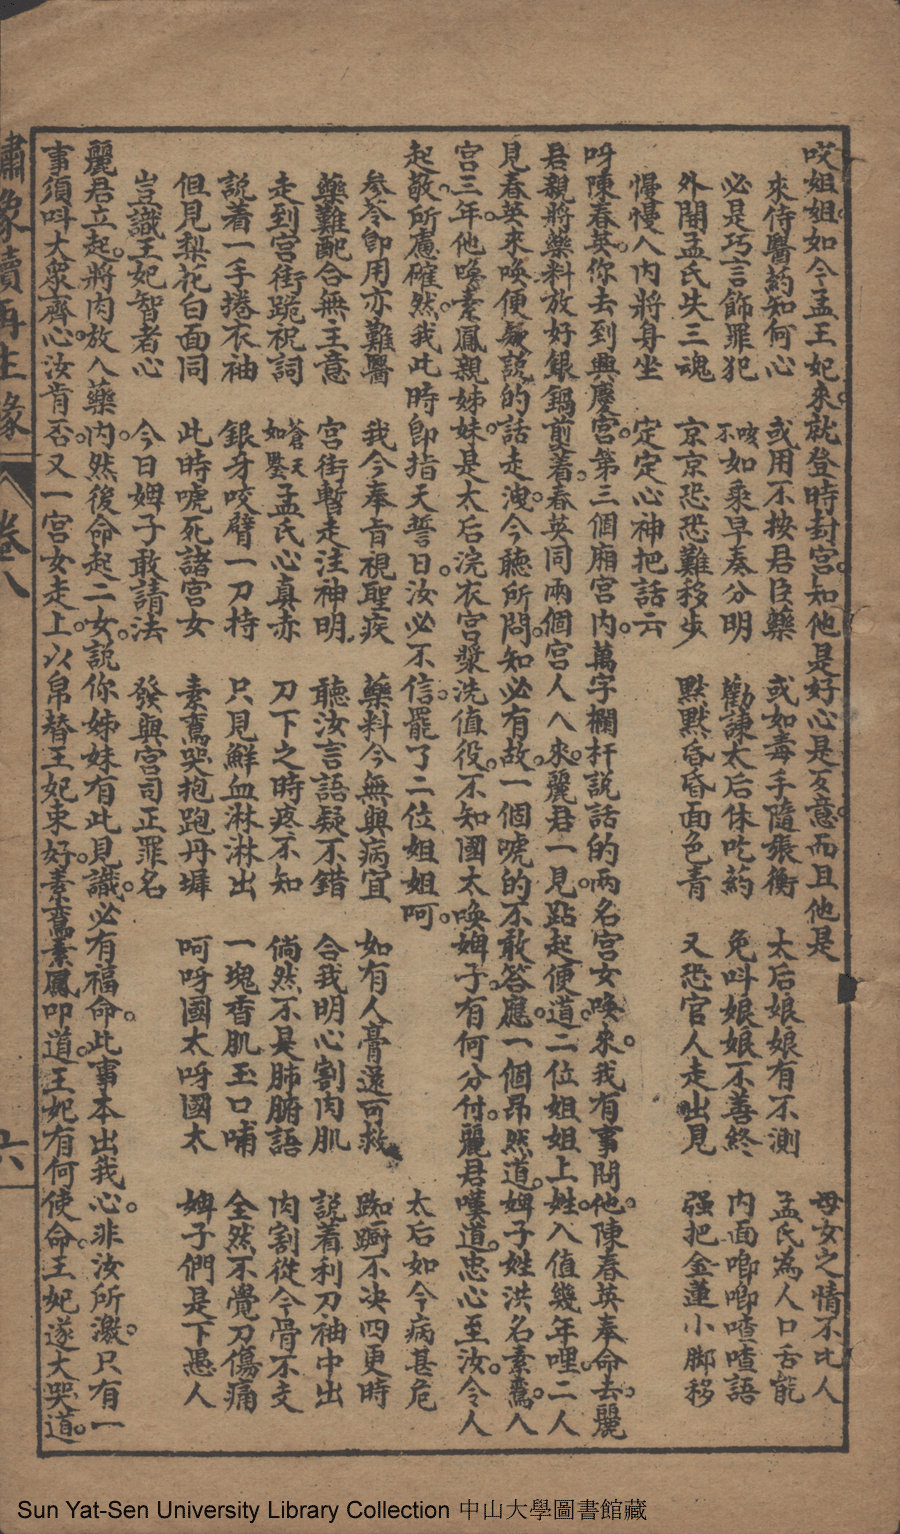 哎姐姐。如今孟王妃來。就登時封宮。知他是好心是歹意。而且他是 母女之情不比人
來侍醫葯知何心 或用不按君臣藥 或如毒手隨張衡 太后娘娘有不測 孟氏為人口舌能
必是巧言飾罪犯 不如乘早奏分明 勸諫太后休吃葯 免呌娘娘不善終 内面唧唧喳喳語
外間孟氏失三魂 京京恐恐難移步 默默昏昏面色青 又恐官人走出見 强把金蓮小脚移
慢慢入内將身坐 定定心神把話云
呀陳春英。你去到興慶宮。第三個廂宮内。萬字欄杆説話的兩名宮女喚來。我有事問他。陳春英奉命去。麗
君親將藥料放好銀鍋煎着。春英同兩個宮人入來。麗君一見點起便道。二位姐姐上姓。入值幾年哩。二人
見春英來喚便疑説的話走洩。今聽所問。知必有故。一個唬的不敢答應。一個昂然道。婢子姓洪名素鸞。入
宮三年。他喚素鳳親姊妹。是太后浣衣宮漿洗值役。不知國太喚婢子有何分付。麗君嘆道。忠心至汝。令人
起敬。所慮確然。我此時卽指天誓曰。汝必不信。罷了二位姐姐呵。 太后如今病甚危
參苓卽用亦難醫 我今奉旨視聖疾 藥料今無與病宜 如有人膏還可救 踟蹰不决四更時
藥難配合無主意 宮街暫走注神明 聽汝言語疑不錯 合我明心割肉肌 説着利刀袖中出
走到宮街跪祝詞 蒼天如鑒孟氏心真赤 刀下之時疼不知 倘然不是肺腑語 肉割從今骨不支
説着一手捲衣袖 銀牙咬臂一刀持 只見鮮血淋淋出 一塊香肌玉口哺 全然不覺刀傷痛
但見梨花白面同 此時唬死諸宮女 素鸞哭抱跑丹墀 呵呀國太呀國太 婢子們是下愚人
豈識王妃智者心 今日婢子敢請法 發與宮司正罪名
麗君立起。將肉放入藥内。然後命起二女。説你姊妹有此見識。必有福命。此事本出我心。非汝所激。只有一
事須呌大衆齊心。汝肯否。又一宮女走上。以帛替王妃束好。素鸞素鳳叩道。王妃有何使命。王妃遂大哭道。
繡像續再生緣 卷八 六
Sun Yat-Sen University Library Collection 中山大學圖書館藏